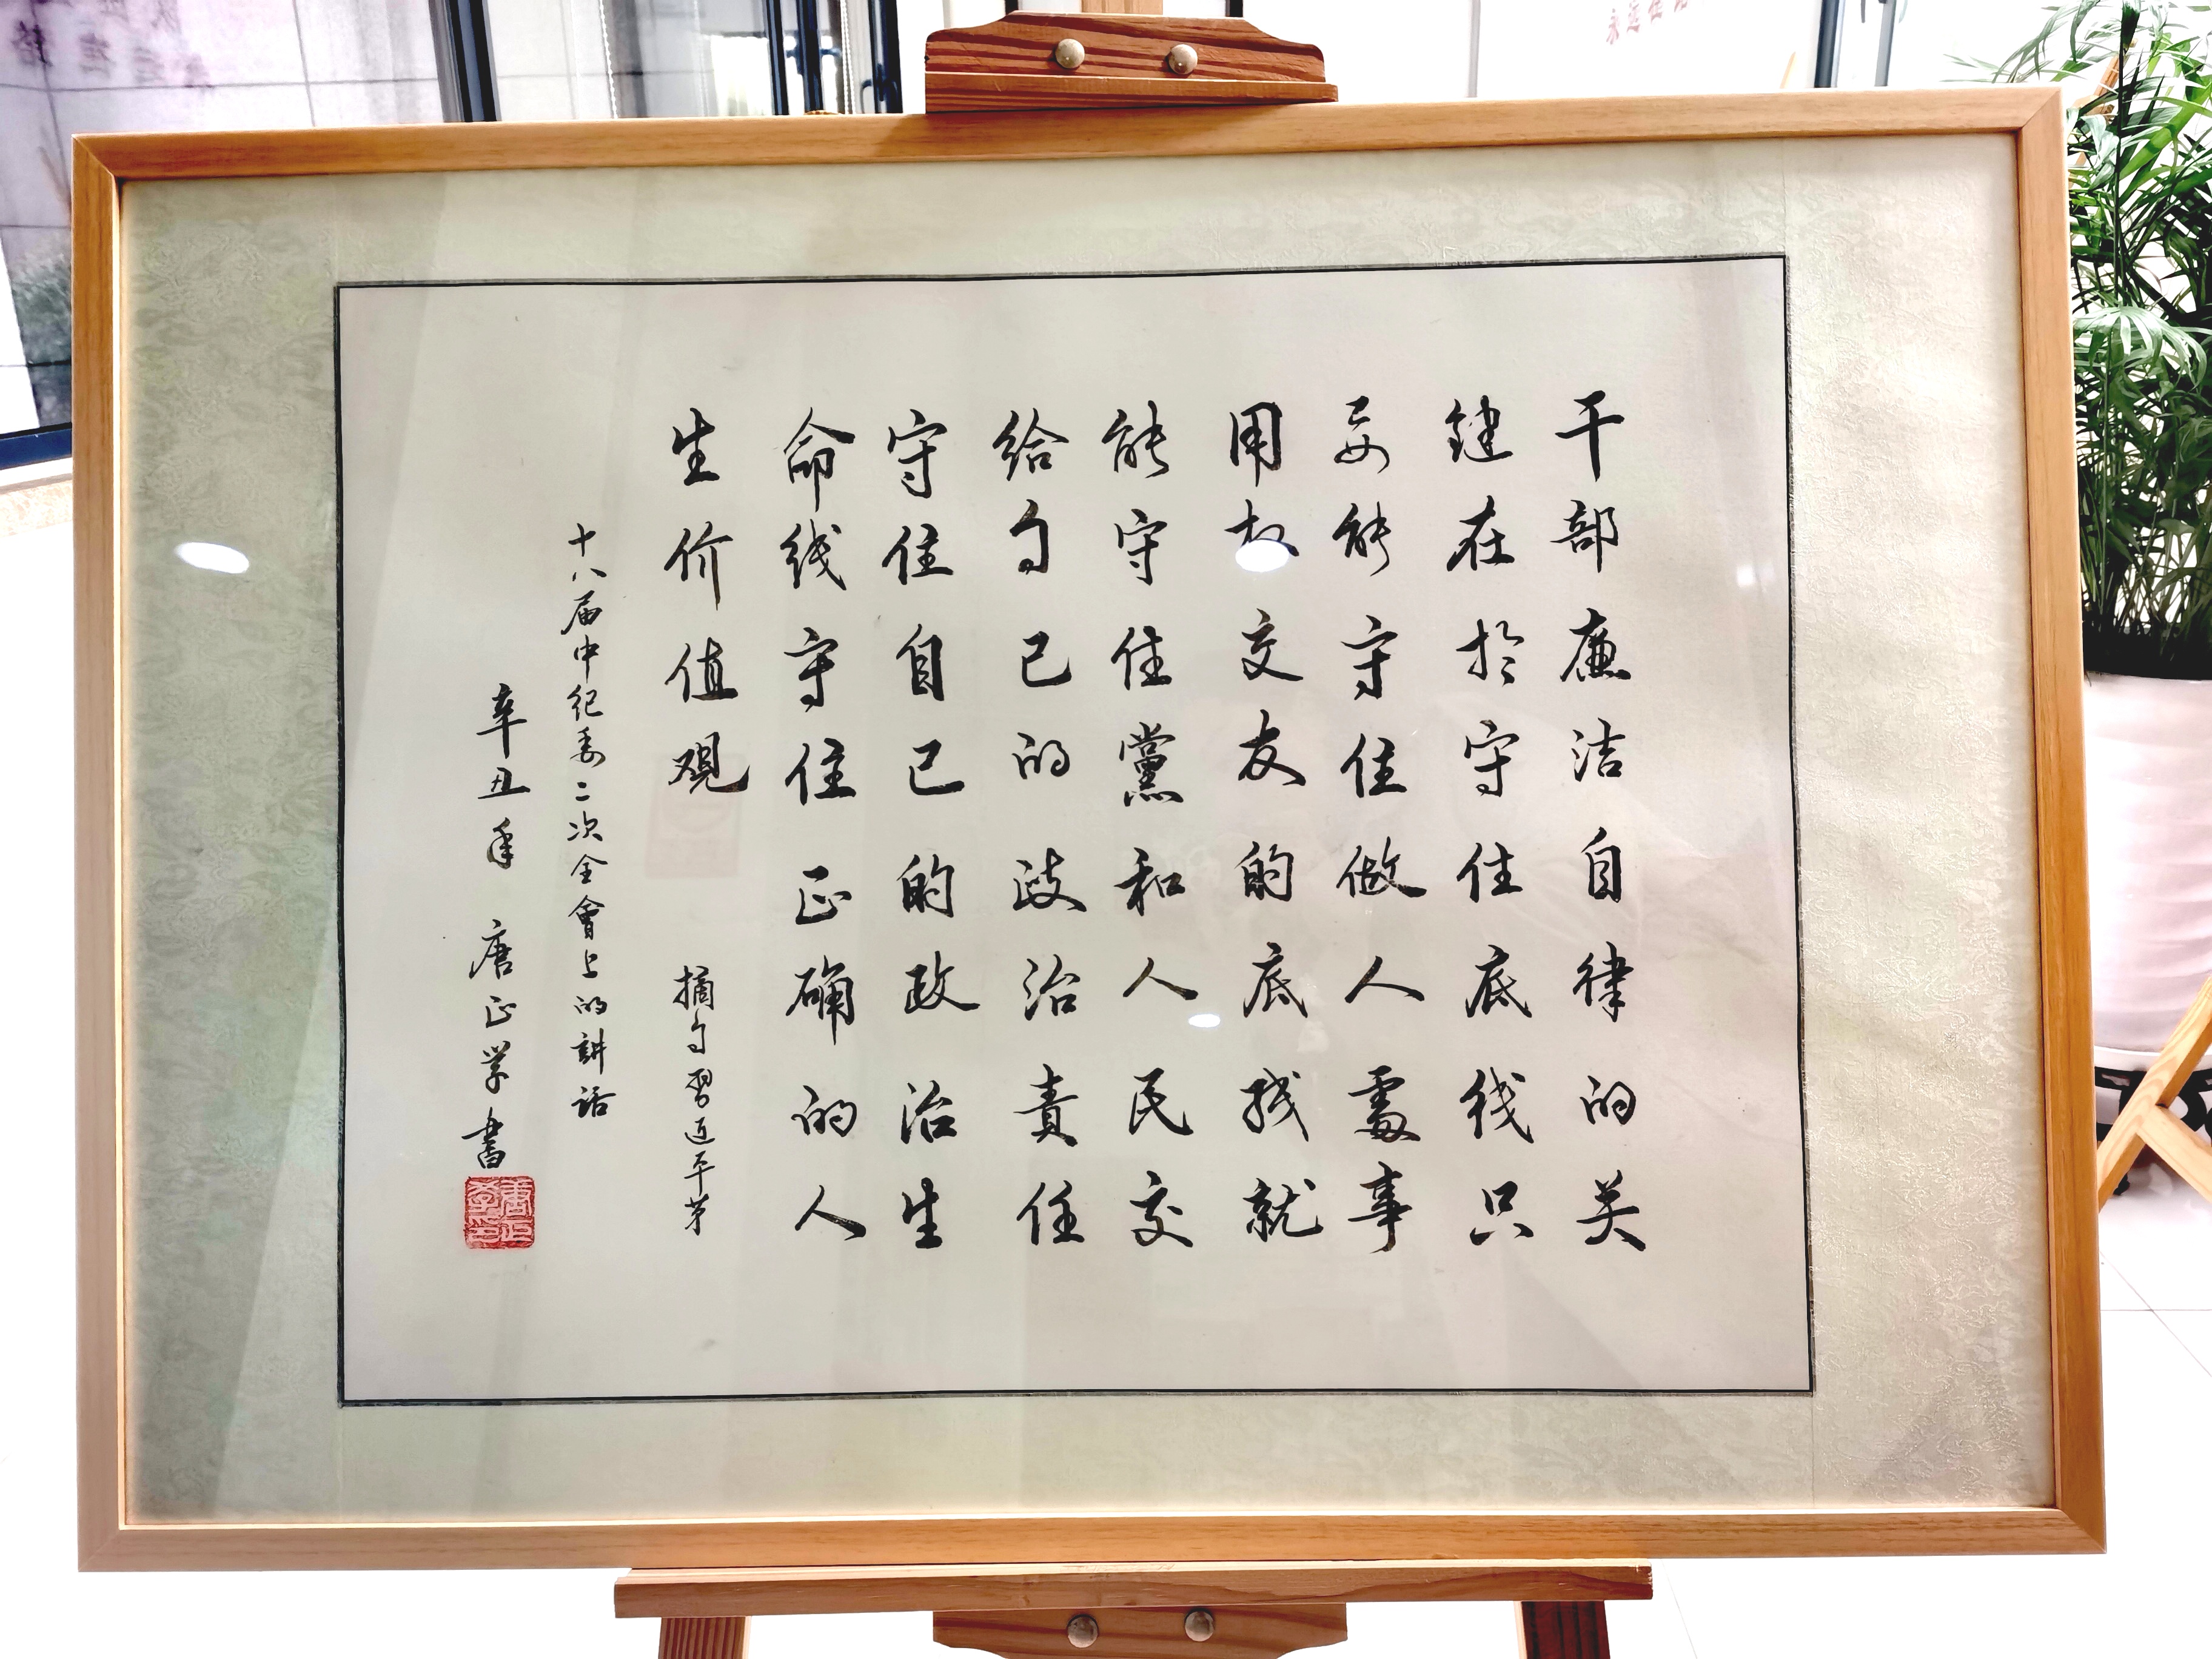 干部廉洁自律的关
键在於守住底线只
要能守住做人處事
用权交友的底线就
能守住黨和人民交
给自己的政治责任
守住自己的政治生
命线守住正确的人
生价值观
摘自習近平第
十八届中纪委二次全會上的講话
辛丑年 唐正学書
唐正学印